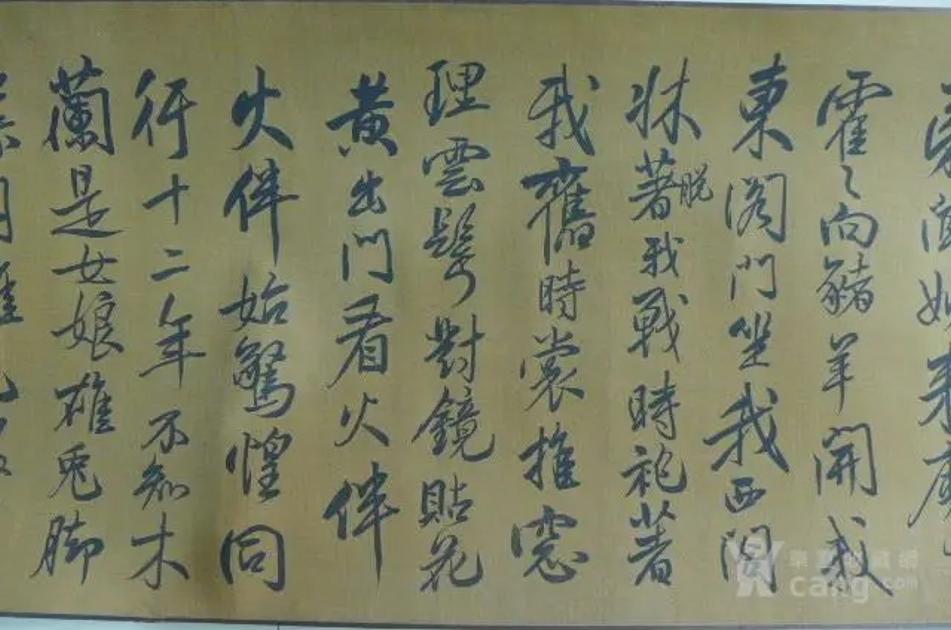 霍〻向豬羊開我
東閣門坐我西閣
牀著脫我戰時袍著
我舊時裳推窓
理雲鬢對鏡貼花
黃出門看火伴
火伴始驚惶同
行十二年不知木
蘭是女娘雄兔脚
cang.com